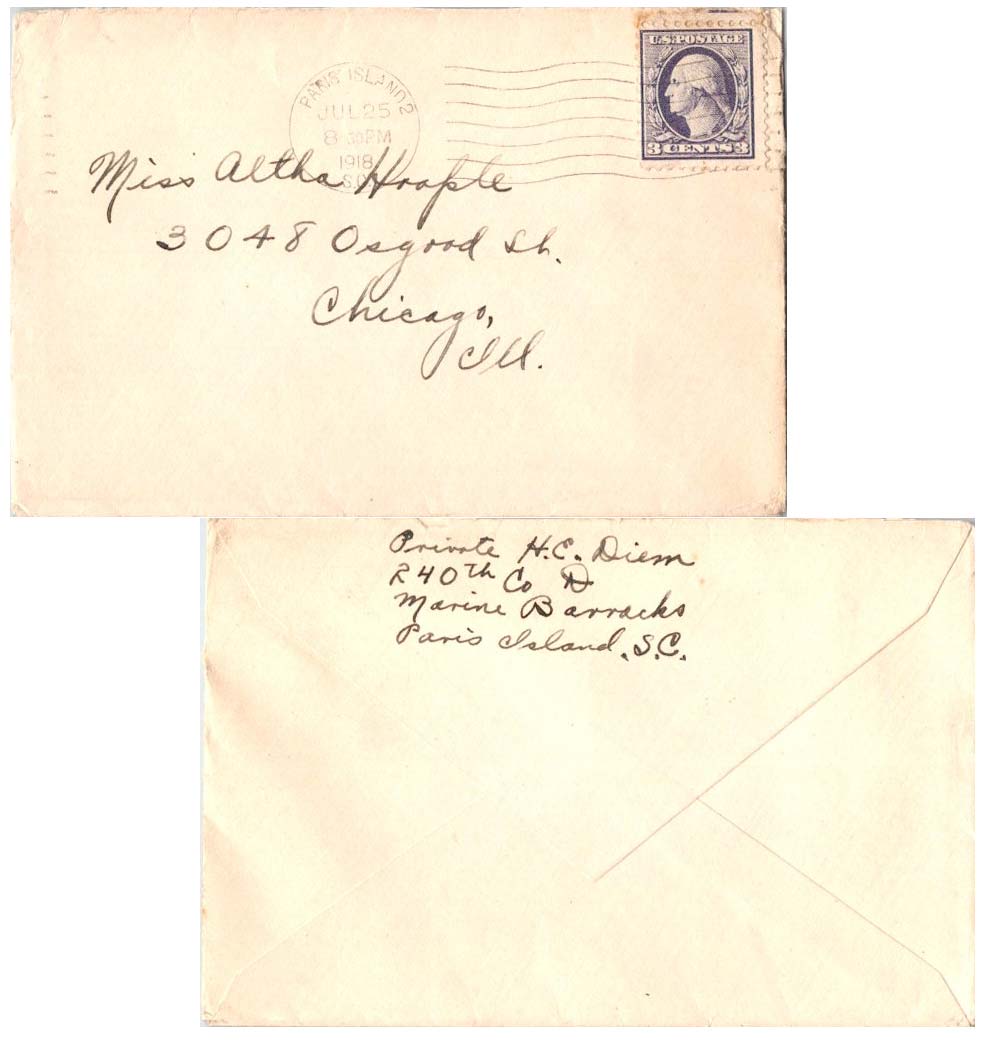 PARIS ISLAND 2
JUL 25
8 30 PM
1918
S.C.
U.S. POSTAGE
3 CENTS 3
Miss Altha Hoople
3048 Osgood St.
Chicago,
Ill.
Private H.E. Diem
240th Co D
Marine Barracks
Paris Island, S.C.